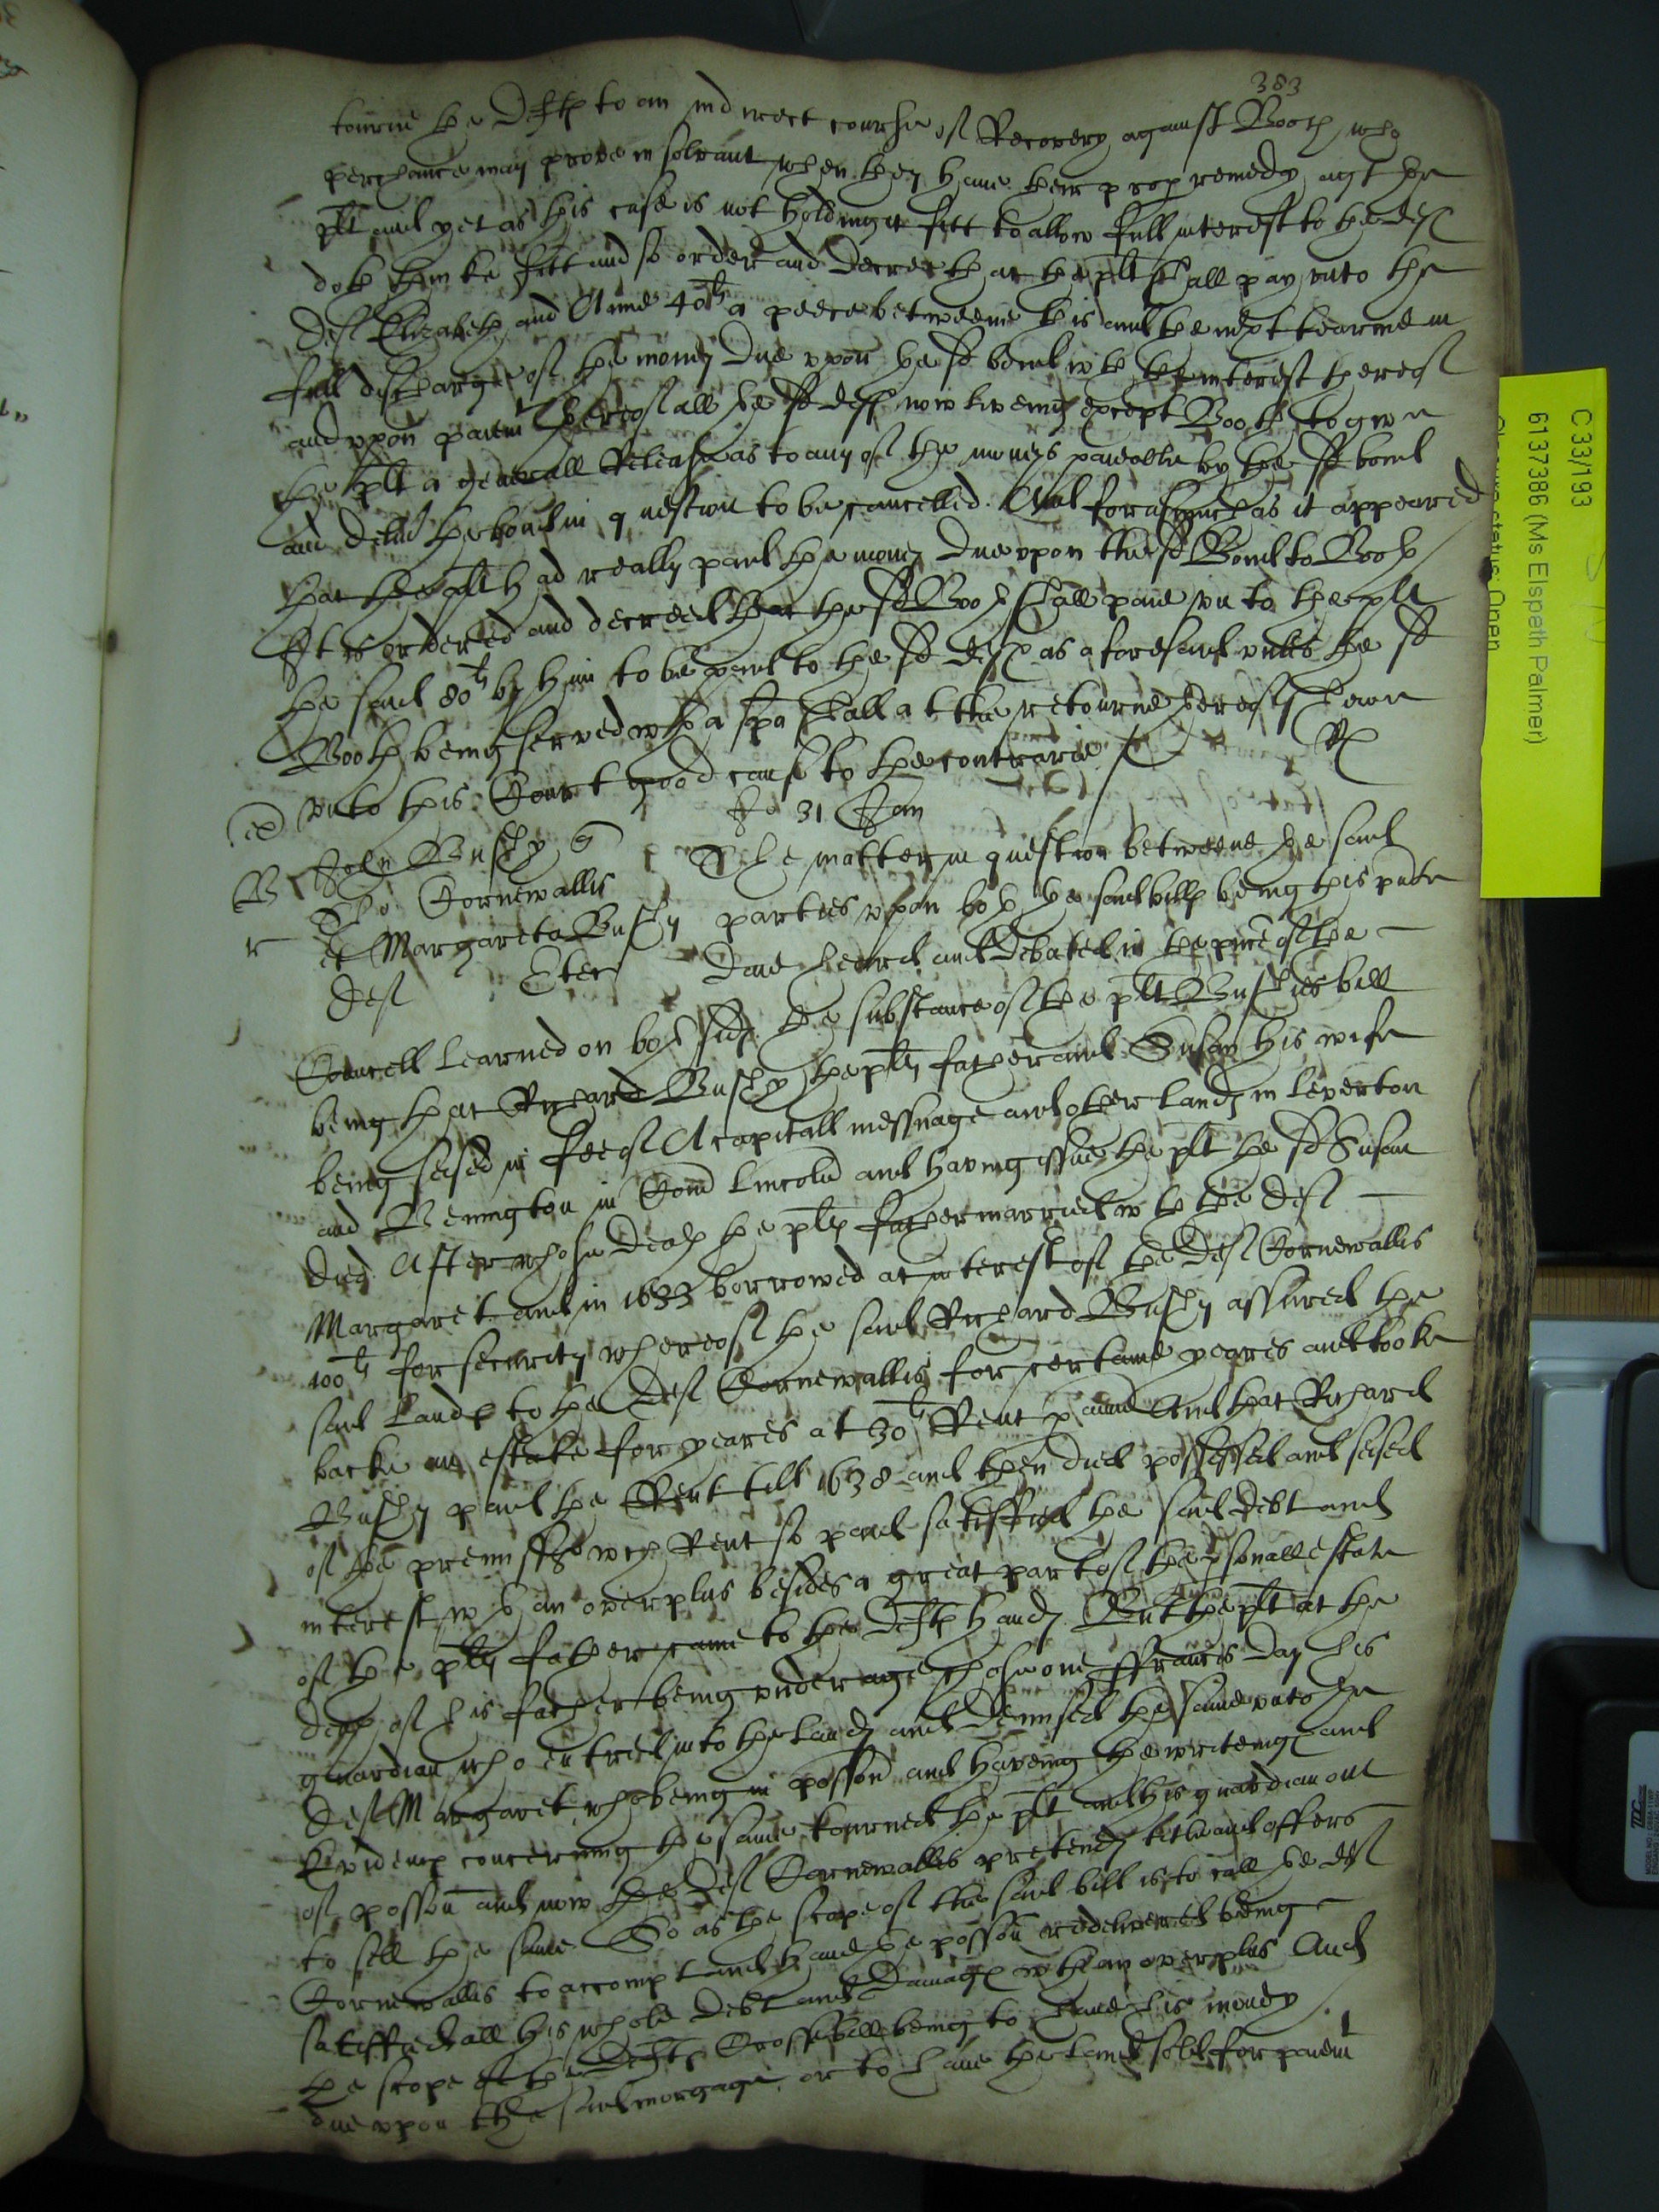 383
tourne the Defts to an indirect course of Recovery against Booth who
perchance may prove insolvant when they have their prop remedy agt the
plt and yet as this case is not holding it fitt to allow full interest to the Deft
doth thinke fitt and so order and decree that the plt shall pay unto the
Deft Elizabeth and Anne 40li a peece betweene this and the next tearme in
full discharge of the money due upon the sd bond wth the interest thereof
and upon paiemt thereof all the sd defts now liveing except Booth to give
the plt a generall Release as to any of the moneys paieable by the sd bond
and delivr the bond in question to be cancelled. And forasmuch as it appeared
that the plt had really paid the money due upon the sd Bond to Booth
It is ordered and decreed that the sd Booth shall paie unto the plt
the said 80li by him to be paid to the sd defts as aforesaid unles the sd
Booth being served wth a spa shall at the retourne thereof shewe
unto this Court good cause to the contrarie
31 Jan
John Bushy
Tho Cornewallis
et Margareta Bushy
Deft
The matter in question betweene the said
parties upon both the said bills being this pnte
Daie heard and debated in the pnce of the
Councell learned on both sides the substance of the plt Bushies bill
being that Richard Bushy the plts father and Susan his wife
being seised in fee of A capitall messuage and other lands in Leverton
and Benington in Com Lincoln and having issue the plt the sd Susan
died After whose death the plts father married wth the Deft
Margaret and in 1633 borrowed at interest of the Deft Cornewallis
100li for security whereof the said Richard Bushy assured the
said Lands to the Deft Cornewallis for certaine yeares and tooke
backe an estate for yeares at 30li Rent p annu And that Richard
Bushy paid the Rent till 1638 and then died possessed and seised
of the premisses wch Rent so paid satisfied the said debt and
interest wth an overplus besides a great part of the psonall estate
of the plts father came to the Defts hands. But the plt at the
death of his father being under age chose one Ffrancis Day his
guardian who entred into the lands and demised the same unto the
Deft Margaret who being in posson and haveing the writeings and
Evidences concerning the same tourned the plt and his guardian out
of posson and now the Deft Cornewallis pretends title and offers
to sell the same So as the scope of the said bill is to call the Deft
Cornewallis to accompt and have the posson redelivered being
satisfied all his whole debt and Damages wth an overplus And
the scope of the Defts Crosse bill being to have his money
due upon the said morgage or to have the land sold for paiemt
C 33/193
6137386 (Ms Elspeth Palmer)